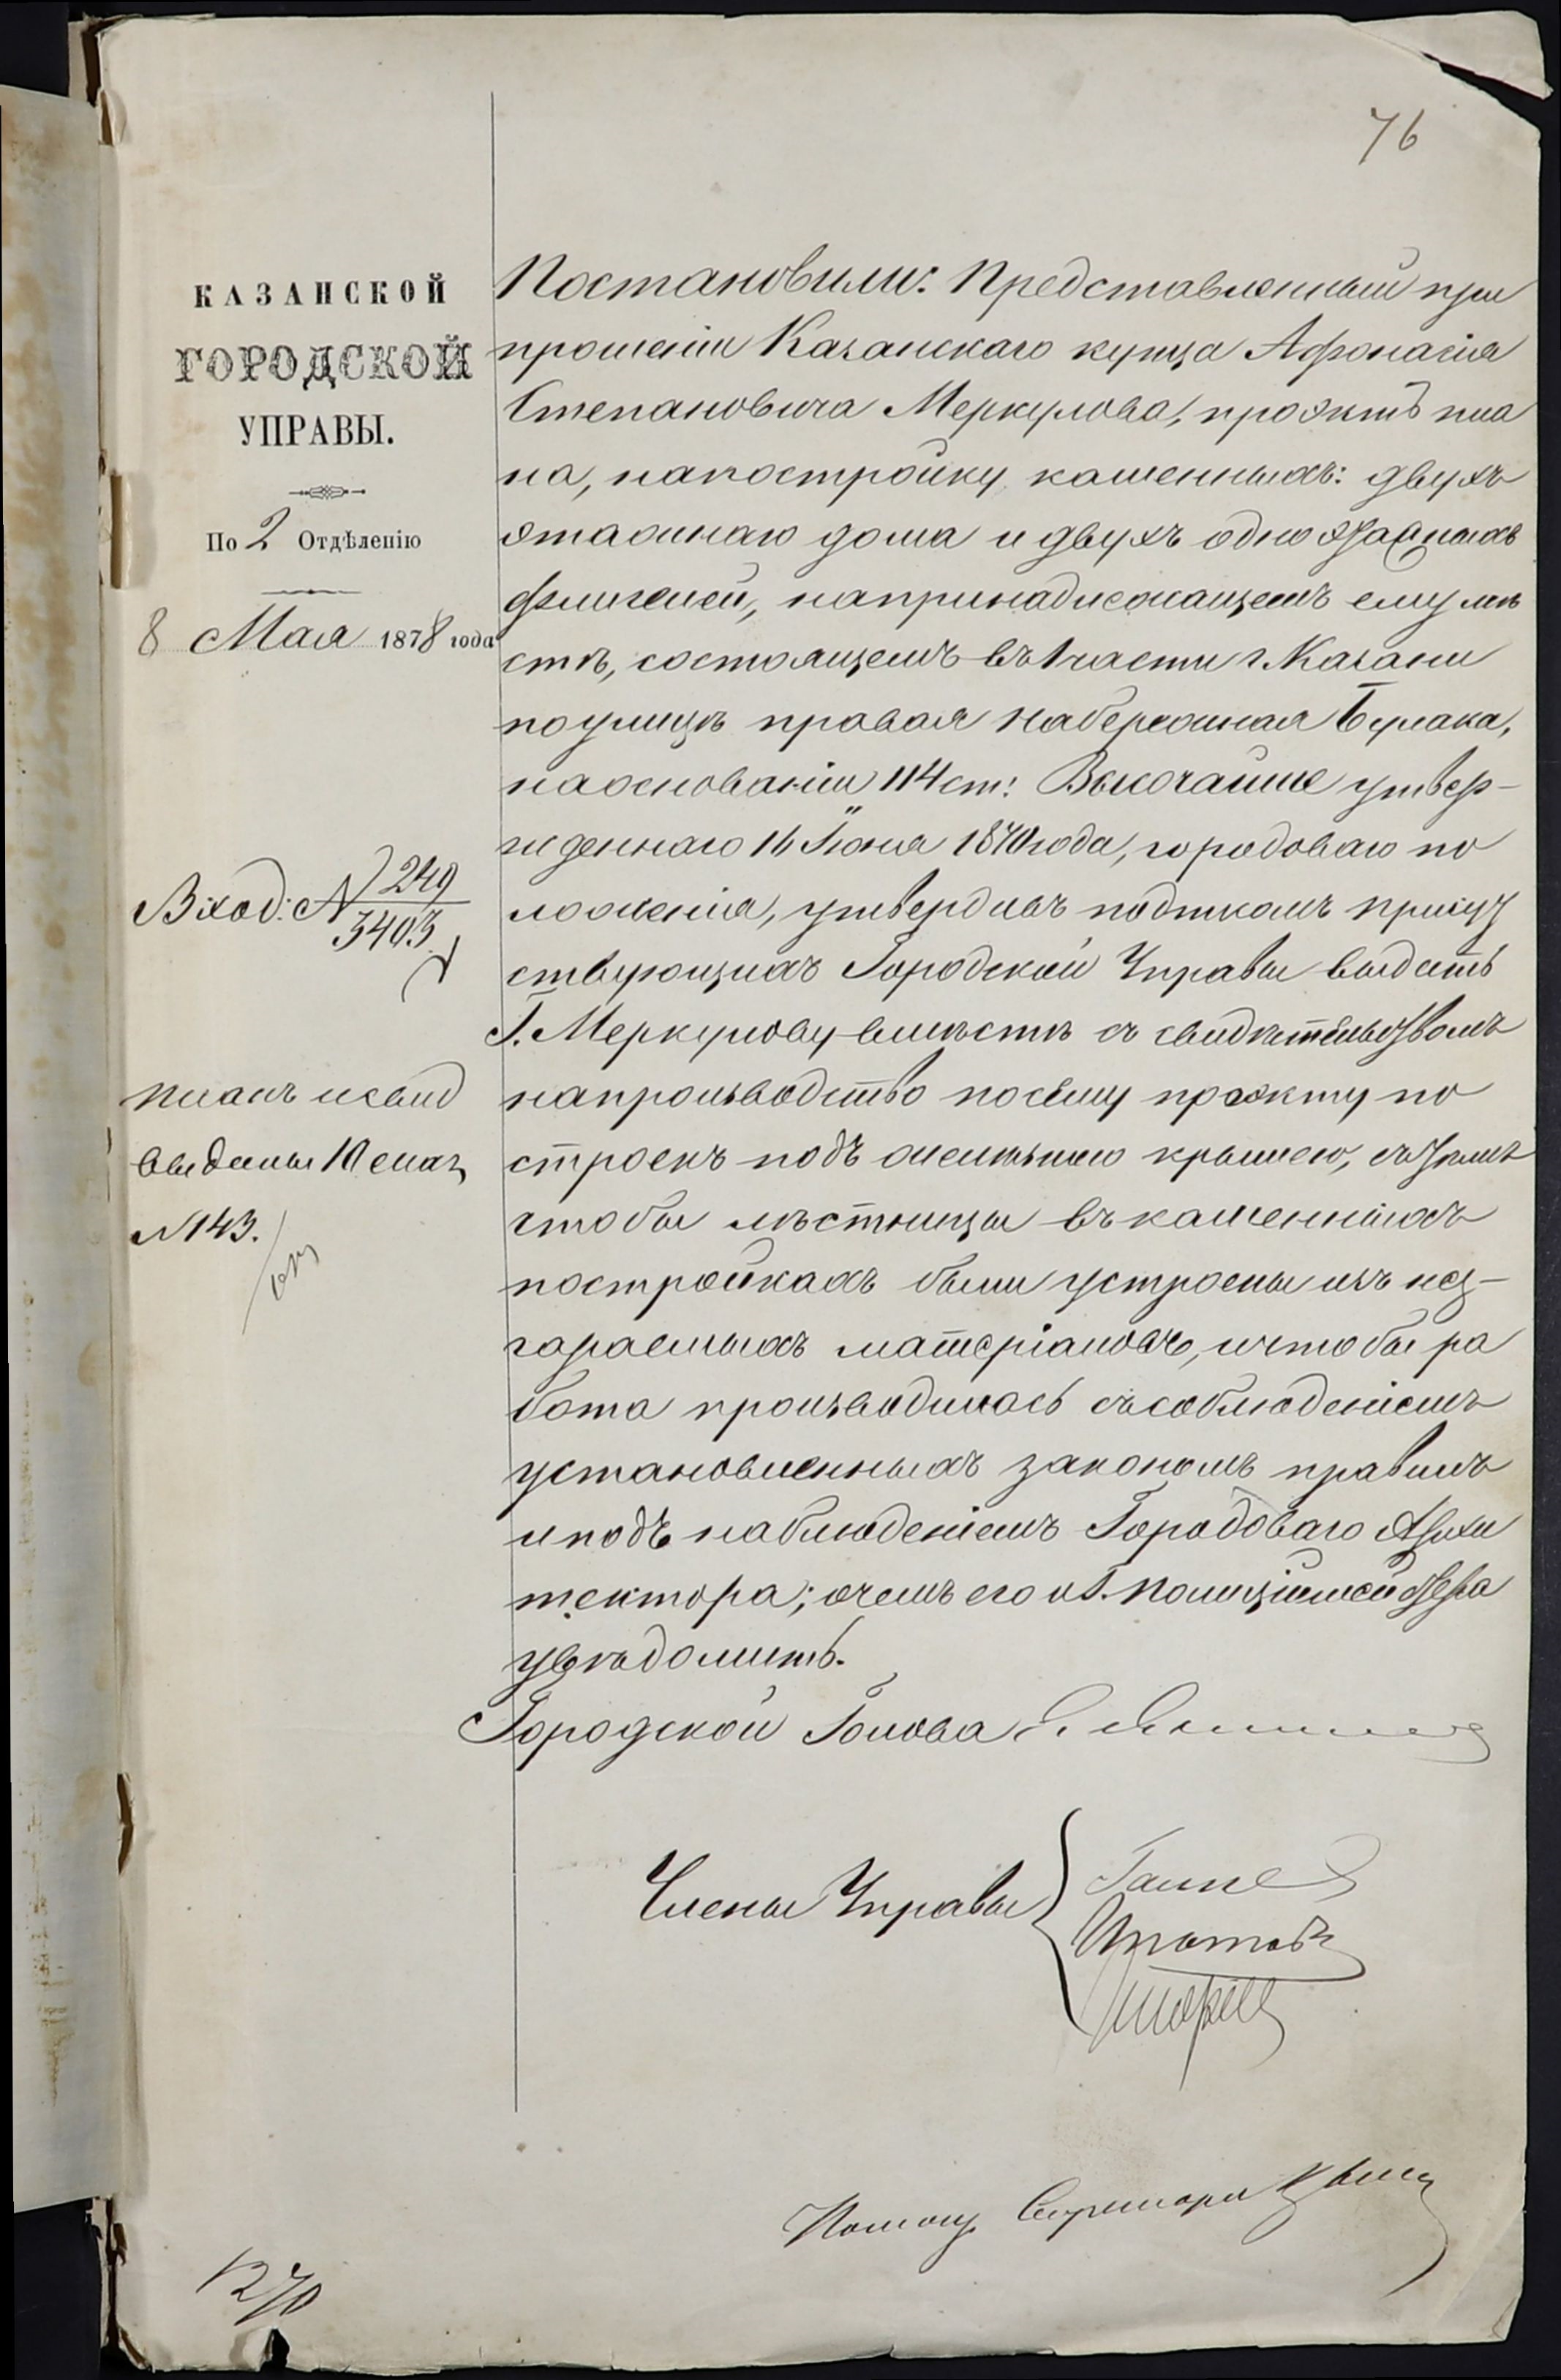 76
КАЗАНСКОЙ
ГОРОДСКОЙ
УПРАВЫ.
По 2 Отдѣленію
8 Мая 1878 года
Вход: № 249
3403
планъ и свид
выданы 10 мая
№ 143.
Постановили: Представленный при
прошеніи Казанскаго купца Афонасія
Степановича Меркулова, проэктъ пла
на, на постройку каменныхъ: двухъ
этажнаго дома и двухъ одно этажныхъ
флигелей, на принадлежащемъ ему мѣ
стѣ, состоящемъ въ 1 части г. Казани
по улицѣ правая набережная Булака,
на основаніи 114 ст: Высочайше утвер-
жденнаго 16 Іюня 1870 года, городоваго по
ложенія, утвердивъ подписомъ присут
ствующихъ Городской Управы выдать
Г. Меркулову вмѣстѣ съ свидѣтельствомъ
на производство по сему проэкту по
строекъ подъ желѣзною крышею, съ тѣмъ
чтобы лѣстницы въ каменныхъ
постройкахъ были устроены изъ нез-
гараемыхъ матеріаловъ, и чтобы ра
бота производилась съ соблюденіемъ
установленныхъ закономъ правилъ
и подъ наблюденіемъ Городоваго Архи
тектора; о чемъ его и Г. Полиціймейстера
увѣдомить.
Городской Голова
Члены Управы
Ипатовъ
Помощ. Секретаря
1270